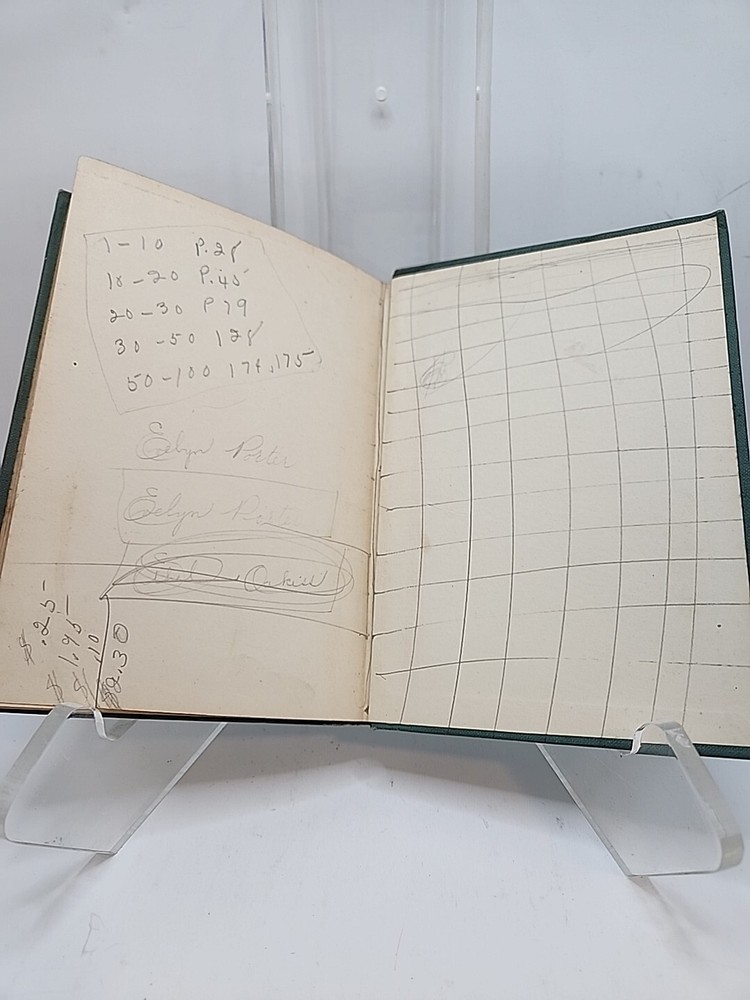 1-10 P.28
10-20 P.45
20-30 P79
30-50 128
50-100 174,175
Eelyn Porter
Eelyn Porter
$ .25
$ 1.95
.10
$2.30